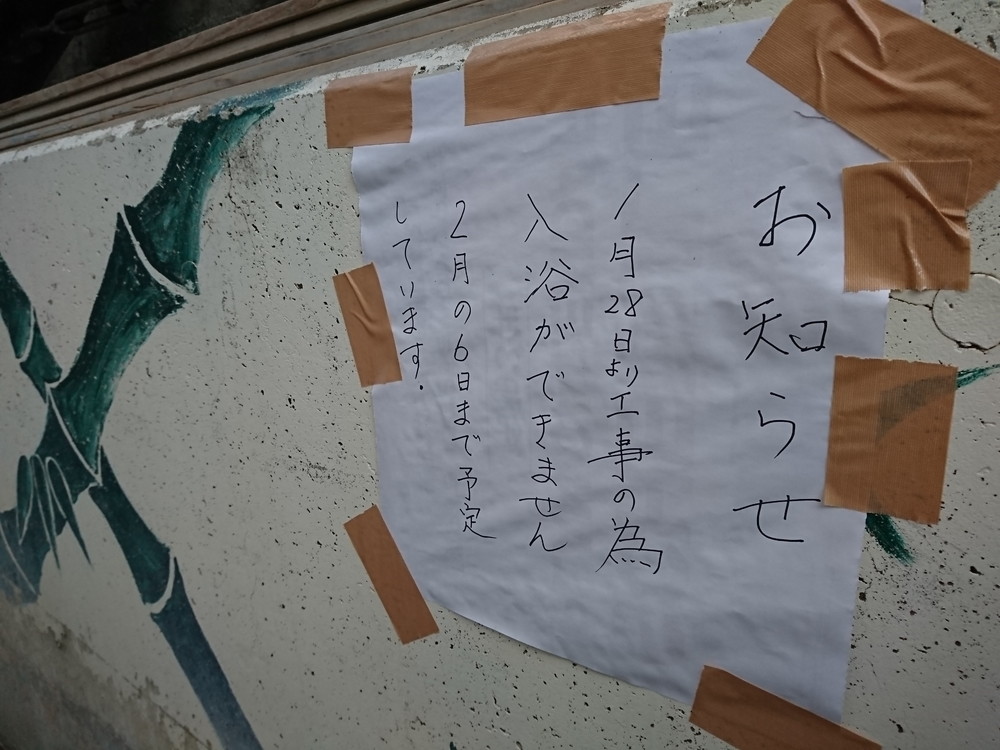 お知らせ
1月28日より工事の為
入浴ができません
2月の6日まで予定
しています.